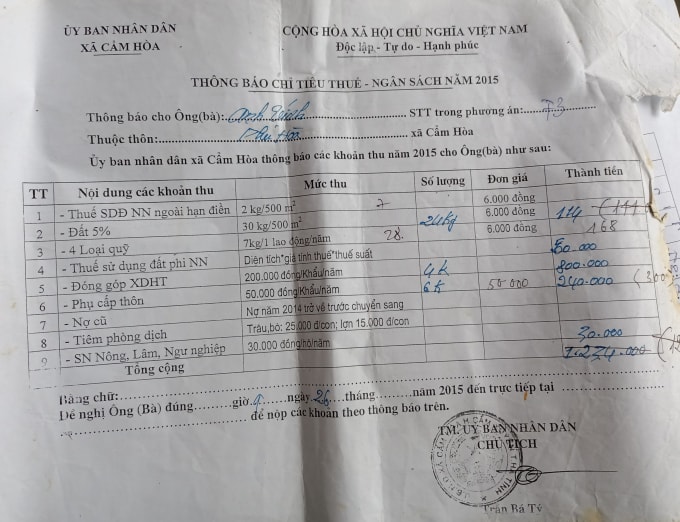 ỦY BAN NHÂN DÂN
XÃ CẨM HÒA
CỘNG HÒA XÃ HỘI CHỦ NGHĨA VIỆT NAM
Độc lập - Tự do - Hạnh phúc
THÔNG BÁO CHỈ TIÊU THUẾ - NGÂN SÁCH NĂM 2015
Thông báo cho Ông(bà): STT trong phương án: 73
Thuộc thôn: Phú Hòa xã Cẩm Hòa
Ủy ban nhân dân xã Cẩm Hòa thông báo các khoản thu năm 2015 cho Ông(bà) như sau:
TT Nội dung các khoản thu Mức thu Số lượng Đơn giá Thành tiền
1 - Thuế SDĐ NN ngoài hạn điền 2 kg/500 m² 7 6.000 đồng
2 - Đất 5% 30 kg/500 m² 24kg 6.000 đồng 144 (144
3 - 4 Loại quỹ 7kg/1 lao động/năm 28 6.000 đồng 168
4 - Thuế sử dụng đất phi NN Diện tích*giá tính thuế*thuế suất 50.000
5 - Đóng góp XDHT 200.000 đồng/Khẩu/năm 4K 800.000
6 - Phụ cấp thôn 50.000 đồng/Khẩu/năm 6K 50.000 240.000 (300
7 - Nợ cũ Nợ năm 2014 trở về trước chuyển sang
8 - Tiêm phòng dịch Trâu,bò: 25.000 đ/con; lợn 15.000 đ/con
9 - SN Nông, Lâm, Ngư nghiệp 30.000 đồng/hộ/năm 30.000
Tổng cộng 1.234.000
Bằng chữ:
Đề nghị Ông (Bà) đúng giờ ngày 26 tháng năm 2015 đến trực tiếp tại
để nộp các khoản theo thông báo trên.
TM. ỦY BAN NHÂN DÂN
CHỦ TỊCH
Trần Bá Tý